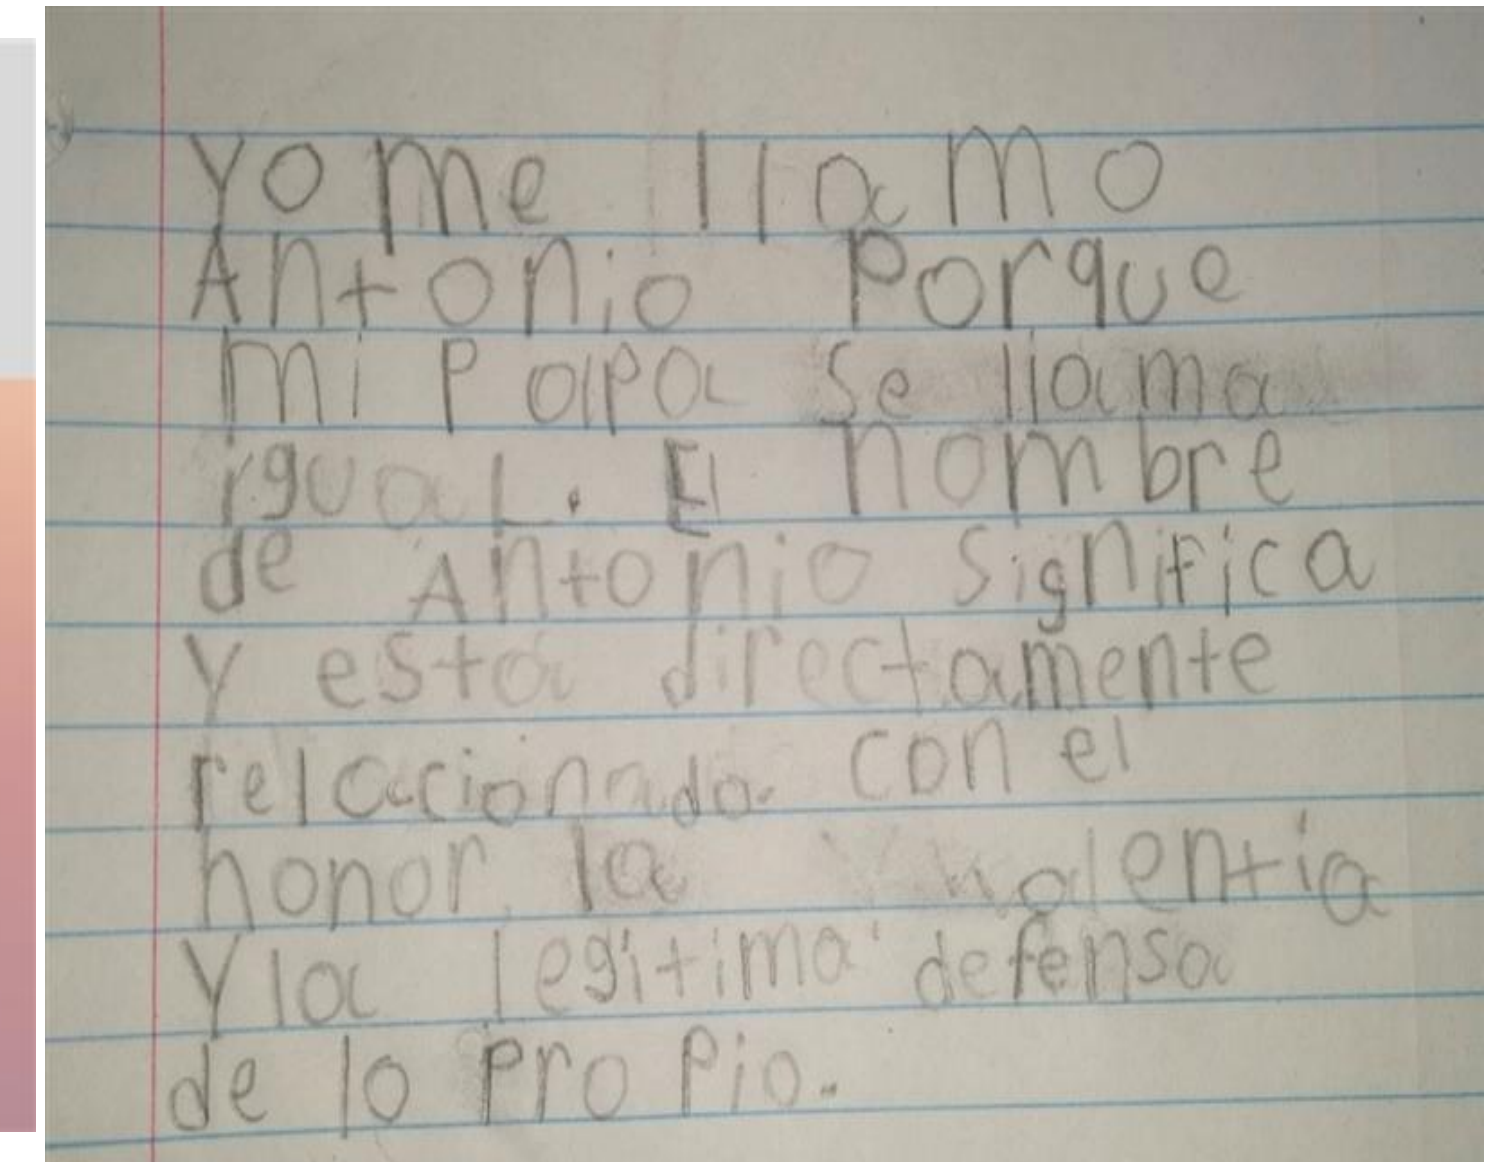 Yo me llamo
Antonio Porque
mi Papa se llama
igual. El nombre
de Antonio significa
y esta directamente
relacionado con el
honor la valentia
y la legitima defensa
de lo propio.